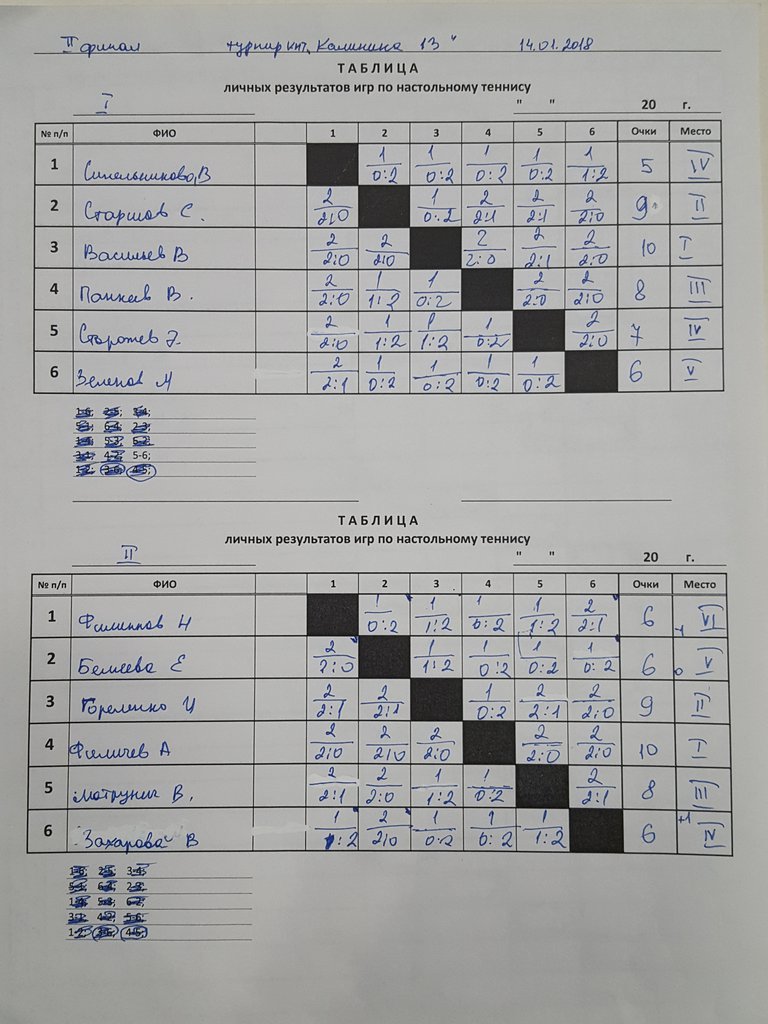 II финал турнир кнт. Калинина 13 14.01.2018
ТАБЛИЦА
личных результатов игр по настольному теннису
I " " 20 г.
№ п/п ФИО 1 2 3 4 5 6 Очки Место
1 Синельникова В 1 0:2 1 0:2 1 0:2 1 0:2 1 1:2 5 IV
2 Старшов С. 2 2:0 1 0:2 2 2:1 2 2:1 2 2:0 9 II
3 Васильев В 2 2:0 2 2:0 2 2:0 2 2:1 2 2:0 10 I
4 Панкев В. 2 2:0 1 1:2 1 0:2 2 2:0 2 2:0 8 III
5 Сторожев Э. 2 2:0 1 1:2 1 1:2 1 0:2 2 2:0 7 IV
6 Зеленов М 2 2:1 1 0:2 1 0:2 1 0:2 1 0:2 6 V
1-6; 2-5; 3-4;
5-1; 6-4; 2-3;
1-4; 5-3; 6-2;
3-1; 4-2; 5-6;
1-2; 3-6; 4-5;
ТАБЛИЦА
личных результатов игр по настольному теннису
II " " 20 г.
№ п/п ФИО 1 2 3 4 5 6 Очки Место
1 Филиппов Н 1 0:2 1 1:2 1 0:2 1 1:2 2 2:1 6 -1 VI
2 Беляева Е 2 2:0 1 1:2 1 0:2 1 0:2 1 0:2 6 0 V
3 Гореленко И 2 2:1 2 2:1 1 0:2 2 2:1 2 2:0 9 II
4 Филичев А 2 2:0 2 2:0 2 2:0 2 2:0 2 2:0 10 I
5 Матрунич В. 2 2:1 2 2:0 1 1:2 1 0:2 2 2:1 8 III
6 Захарова В 1 1:2 2 2:0 1 0:2 1 0:2 1 1:2 6 +1 IV
1-6; 2-5; 3-4;
5-1; 6-4; 2-3;
1-4; 5-3; 6-2;
3-1; 4-2; 5-6;
1-2; 3-6; 4-5;